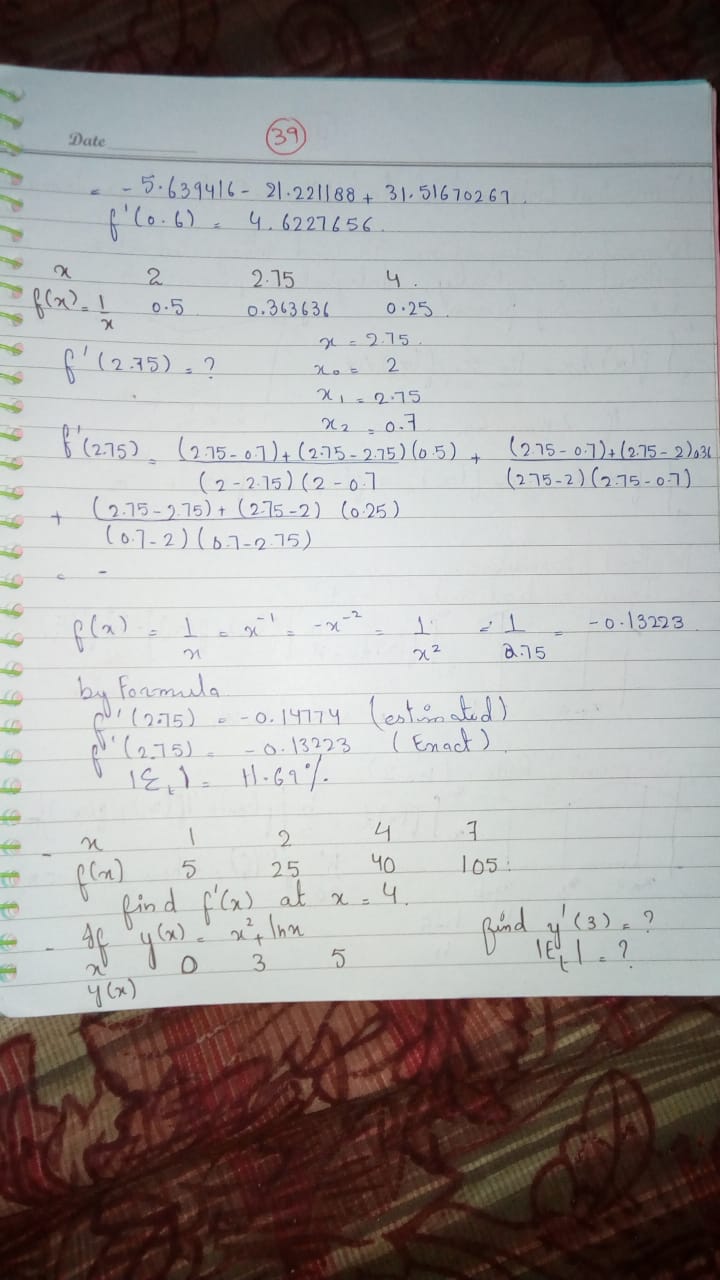 Date 39
= - 5.639416 - 21.221188 + 31.51670267
f'(0.6) = 4.6227656
x 2 2.75 4.
f(x) = 1/x 0.5 0.363636 0.25
x = 2.75.
f'(2.75) = ? x₀ = 2
x₁ = 2.75
x₂ = 0.7
f'(2.75) = (2.75-0.7)+(2.75-2.75)(0.5) / (2-2.75)(2-0.7 + (2.75-0.7)+(2.75-2)0.36 / (2.75-2)(2.75-0.7)
+ (2.75-2.75)+(2.75-2) (0.25) / (0.7-2)(0.7-2.75)
= -
f(x) = 1/x = x⁻¹ = -x⁻² = 1/x² = 1/2.75 = -0.13223
by Formula
f'(2.75) = -0.14774 (estimated)
f'(2.75) = -0.13223 (Exact)
|Eₜ| = 11.69%
- x 1 2 4 7
f(x) 5 25 40 105.
find f'(x) at x = 4.
- If y(x) = x² + lnx find y'(3) = ?
x 0 3 5 |Eₜ| = ?
y(x)